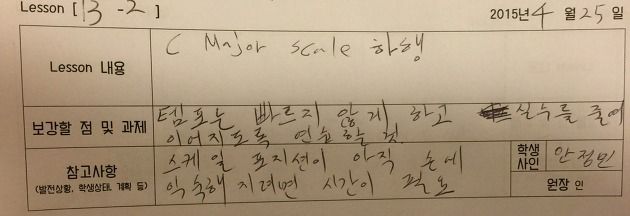 Lesson [ 13-2 ] 2015년 4 월 25 일
Lesson 내용 C Major scale 하행
보강할 점 및 과제 템포는 빠르지 않게 하고 실수를 줄여
이어지도록 연습할 것
참고사항 스케일 포지션이 아직 손에 학생 사인 안정민
(발전상황, 학생상태, 계획 등) 익숙해 지려면 시간이 필요 원장 인